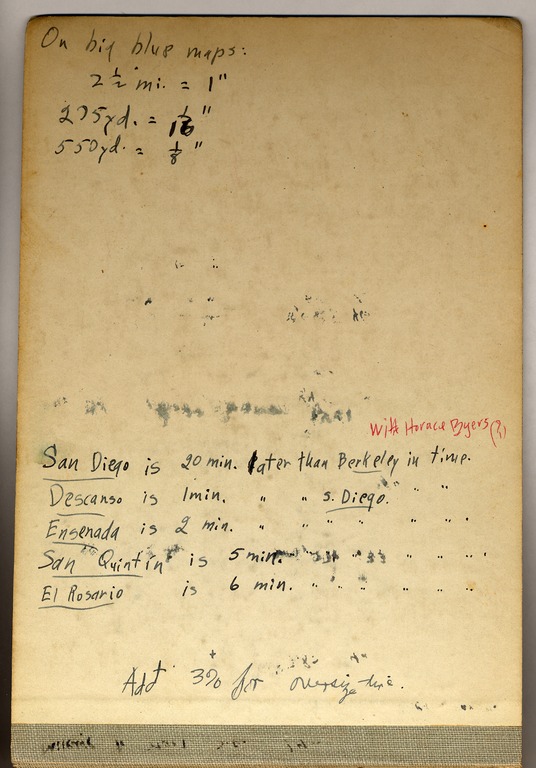 On big blue maps:
2 1/2 mi. = 1"
275yd. = 1/16"
550yd. = 1/8"
With Horace Byers (?)
San Diego is 20 min. later than Berkeley in time.
Descanso is 1min. " " S. Diego. " "
Ensenada is 2 min. " " " " " "
San Quintín is 5 min. " " " " " "
El Rosario is 6 min. " " " " " "
Add 3% for oversize